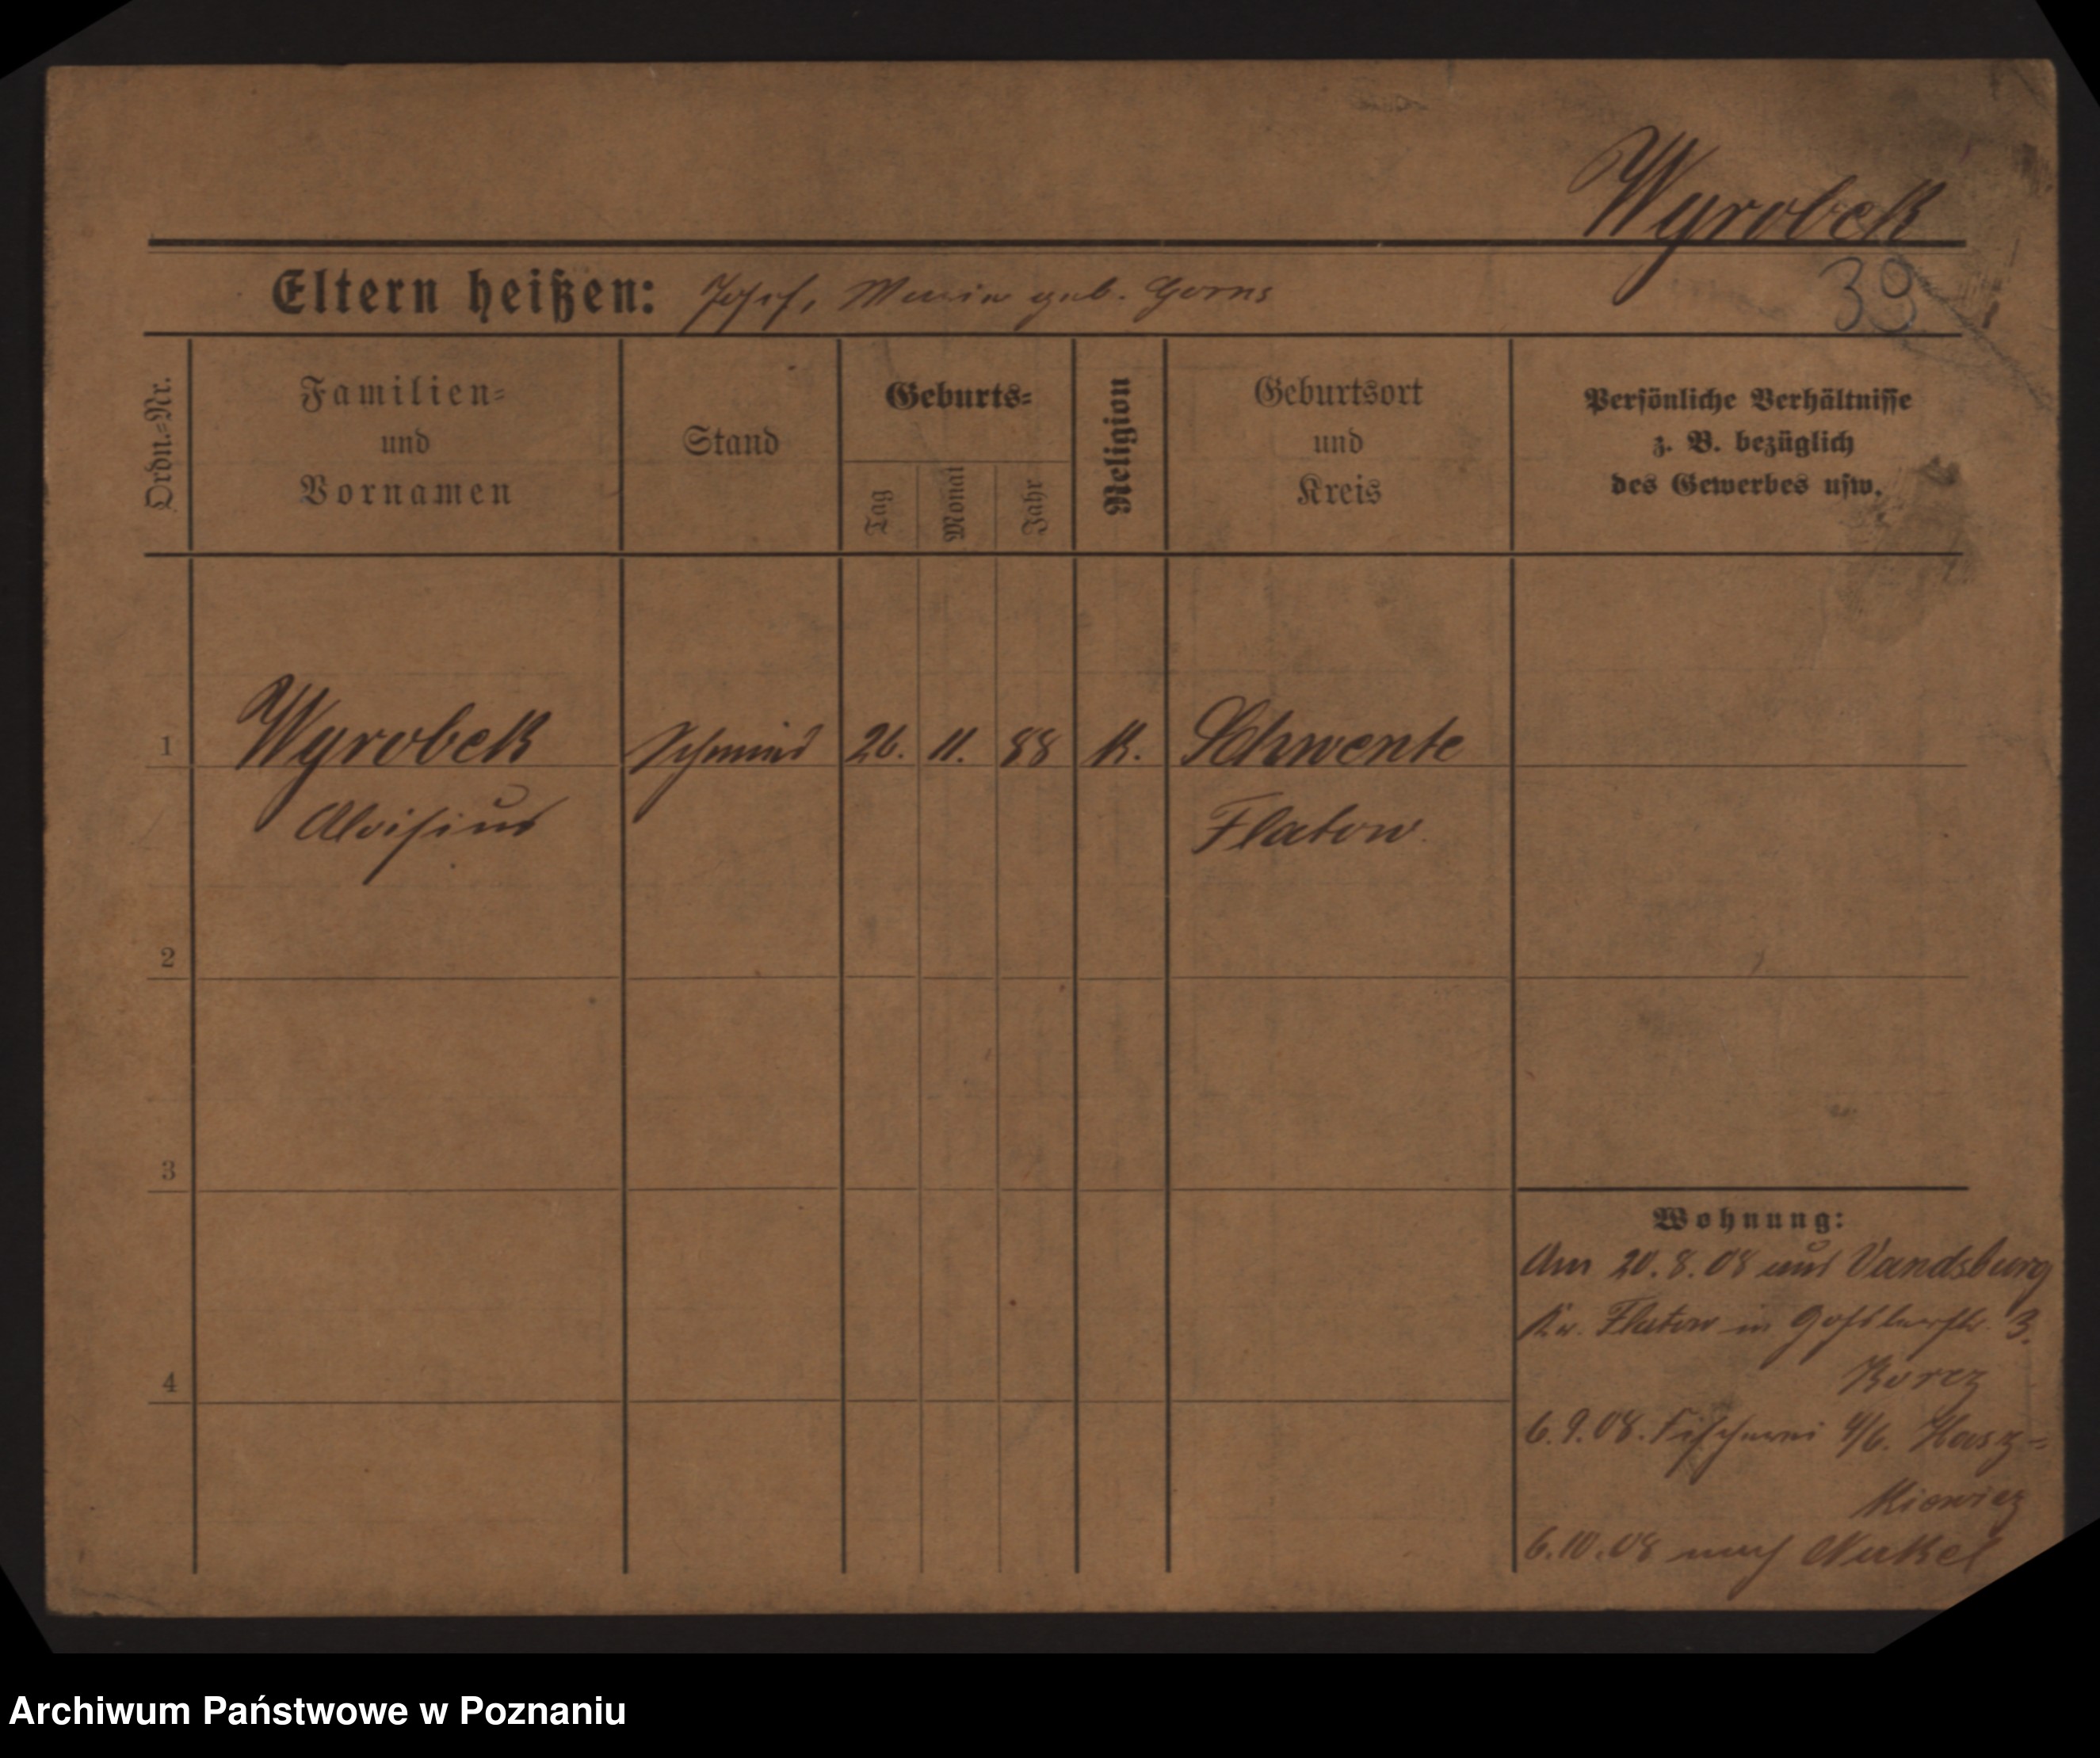 Wyrobek
39
Eltern heißen: Josef, Maria geb. Gorns
Ordn.=Nr.
Familien=
und
Vornamen
Stand
Geburts=
Tag
Monat
Jahr
Religion
Geburtsort
und
Kreis
Persönliche Verhältnisse
z. B. bezüglich
des Gewerbes usw.
1 Wyrobek Schmied 26. 11. 88 K. Schwente
Aloisius Flatow.
2
3
4
Wohnung:
Am 20.8.08 aus Vandsburg
Kr. Flatow in 3.
Borcz
6.9.08. Fischerei 4/6. Hasz=
kiewicz
6.10.08 nach Nakel
Archiwum Państwowe w Poznaniu